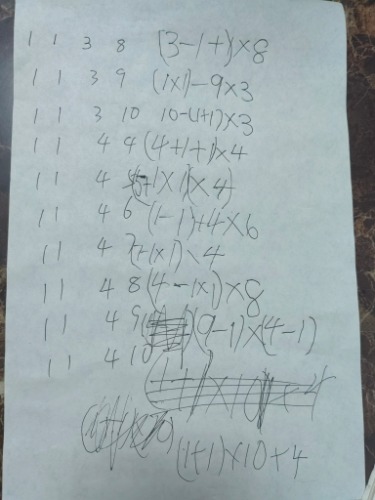 1 1 3 8 (3-1+)×8
1 1 3 9 (1×1)-9×3
1 1 3 10 10-(1+1)×3
1 1 4 4 (4+1+1)×4
1 1 4 5 (5+1×1)×4)
1 1 4 6 (1-1)+4×6
1 1 4 7 +1×1)×4
1 1 4 8 (4-1×1)×8
1 1 4 9 (9-1)×(4-1)
1 1 4 10
(1+1)×10+4